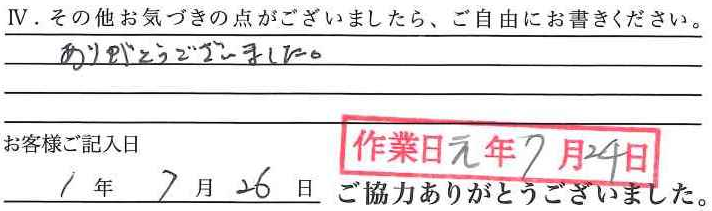 Ⅳ．その他お気づきの点がございましたら、ご自由にお書きください。
ありがとうございました。
お客様ご記入日
作業日元年7月24日
1年7月26日
ご協力ありがとうございました。